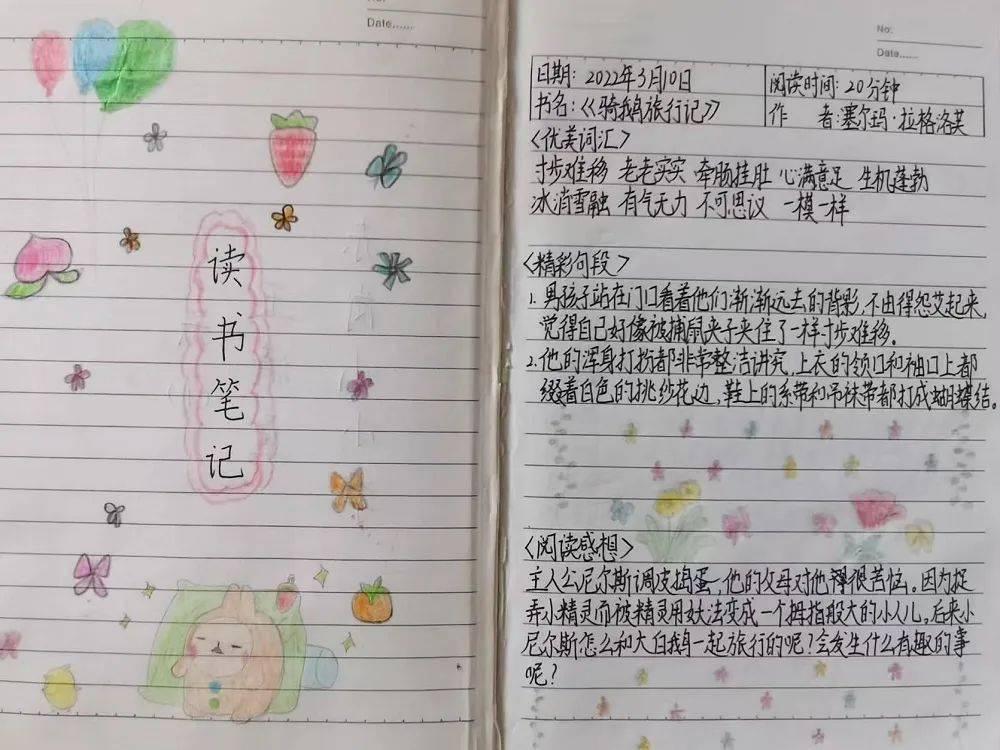 No:
Date......
读
书
笔
记
No:
Date......
日期: 2022年3月10日
阅读时间: 20分钟
书名:《骑鹅旅行记》
作 者:塞尔玛·拉格洛芙
<优美词汇>
寸步难移 老老实实 牵肠挂肚 心满意足 生机蓬勃
冰消雪融 有气无力 不可思议 一模一样
<精彩句段>
1. 男孩子站在门口看着他们渐渐远去的背影,不由得怨艾起来,
觉得自己好像被捕鼠夹子夹住了一样寸步难移.
2. 他的浑身打扮都非常整洁讲究,上衣的领口和袖口上都
缀着白色的挑纱花边,鞋上的系带和吊袜带都打成蝴蝶结。
<阅读感想>
主人公尼尔斯调皮捣蛋,他的父母对他很苦恼。因为捉
弄小精灵而被精灵用妖法变成一个拇指般大的小人儿,后来小
尼尔斯怎么和大白鹅一起旅行的呢?会发生什么有趣的事
呢?